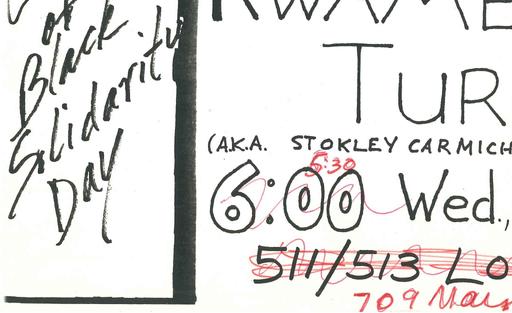 of
Black
Solidarity
Day
KWAME
TUR
(A.K.A. STOKLEY CARMICH
5:30
6:00 Wed.,
511/513 Lo
709 Main